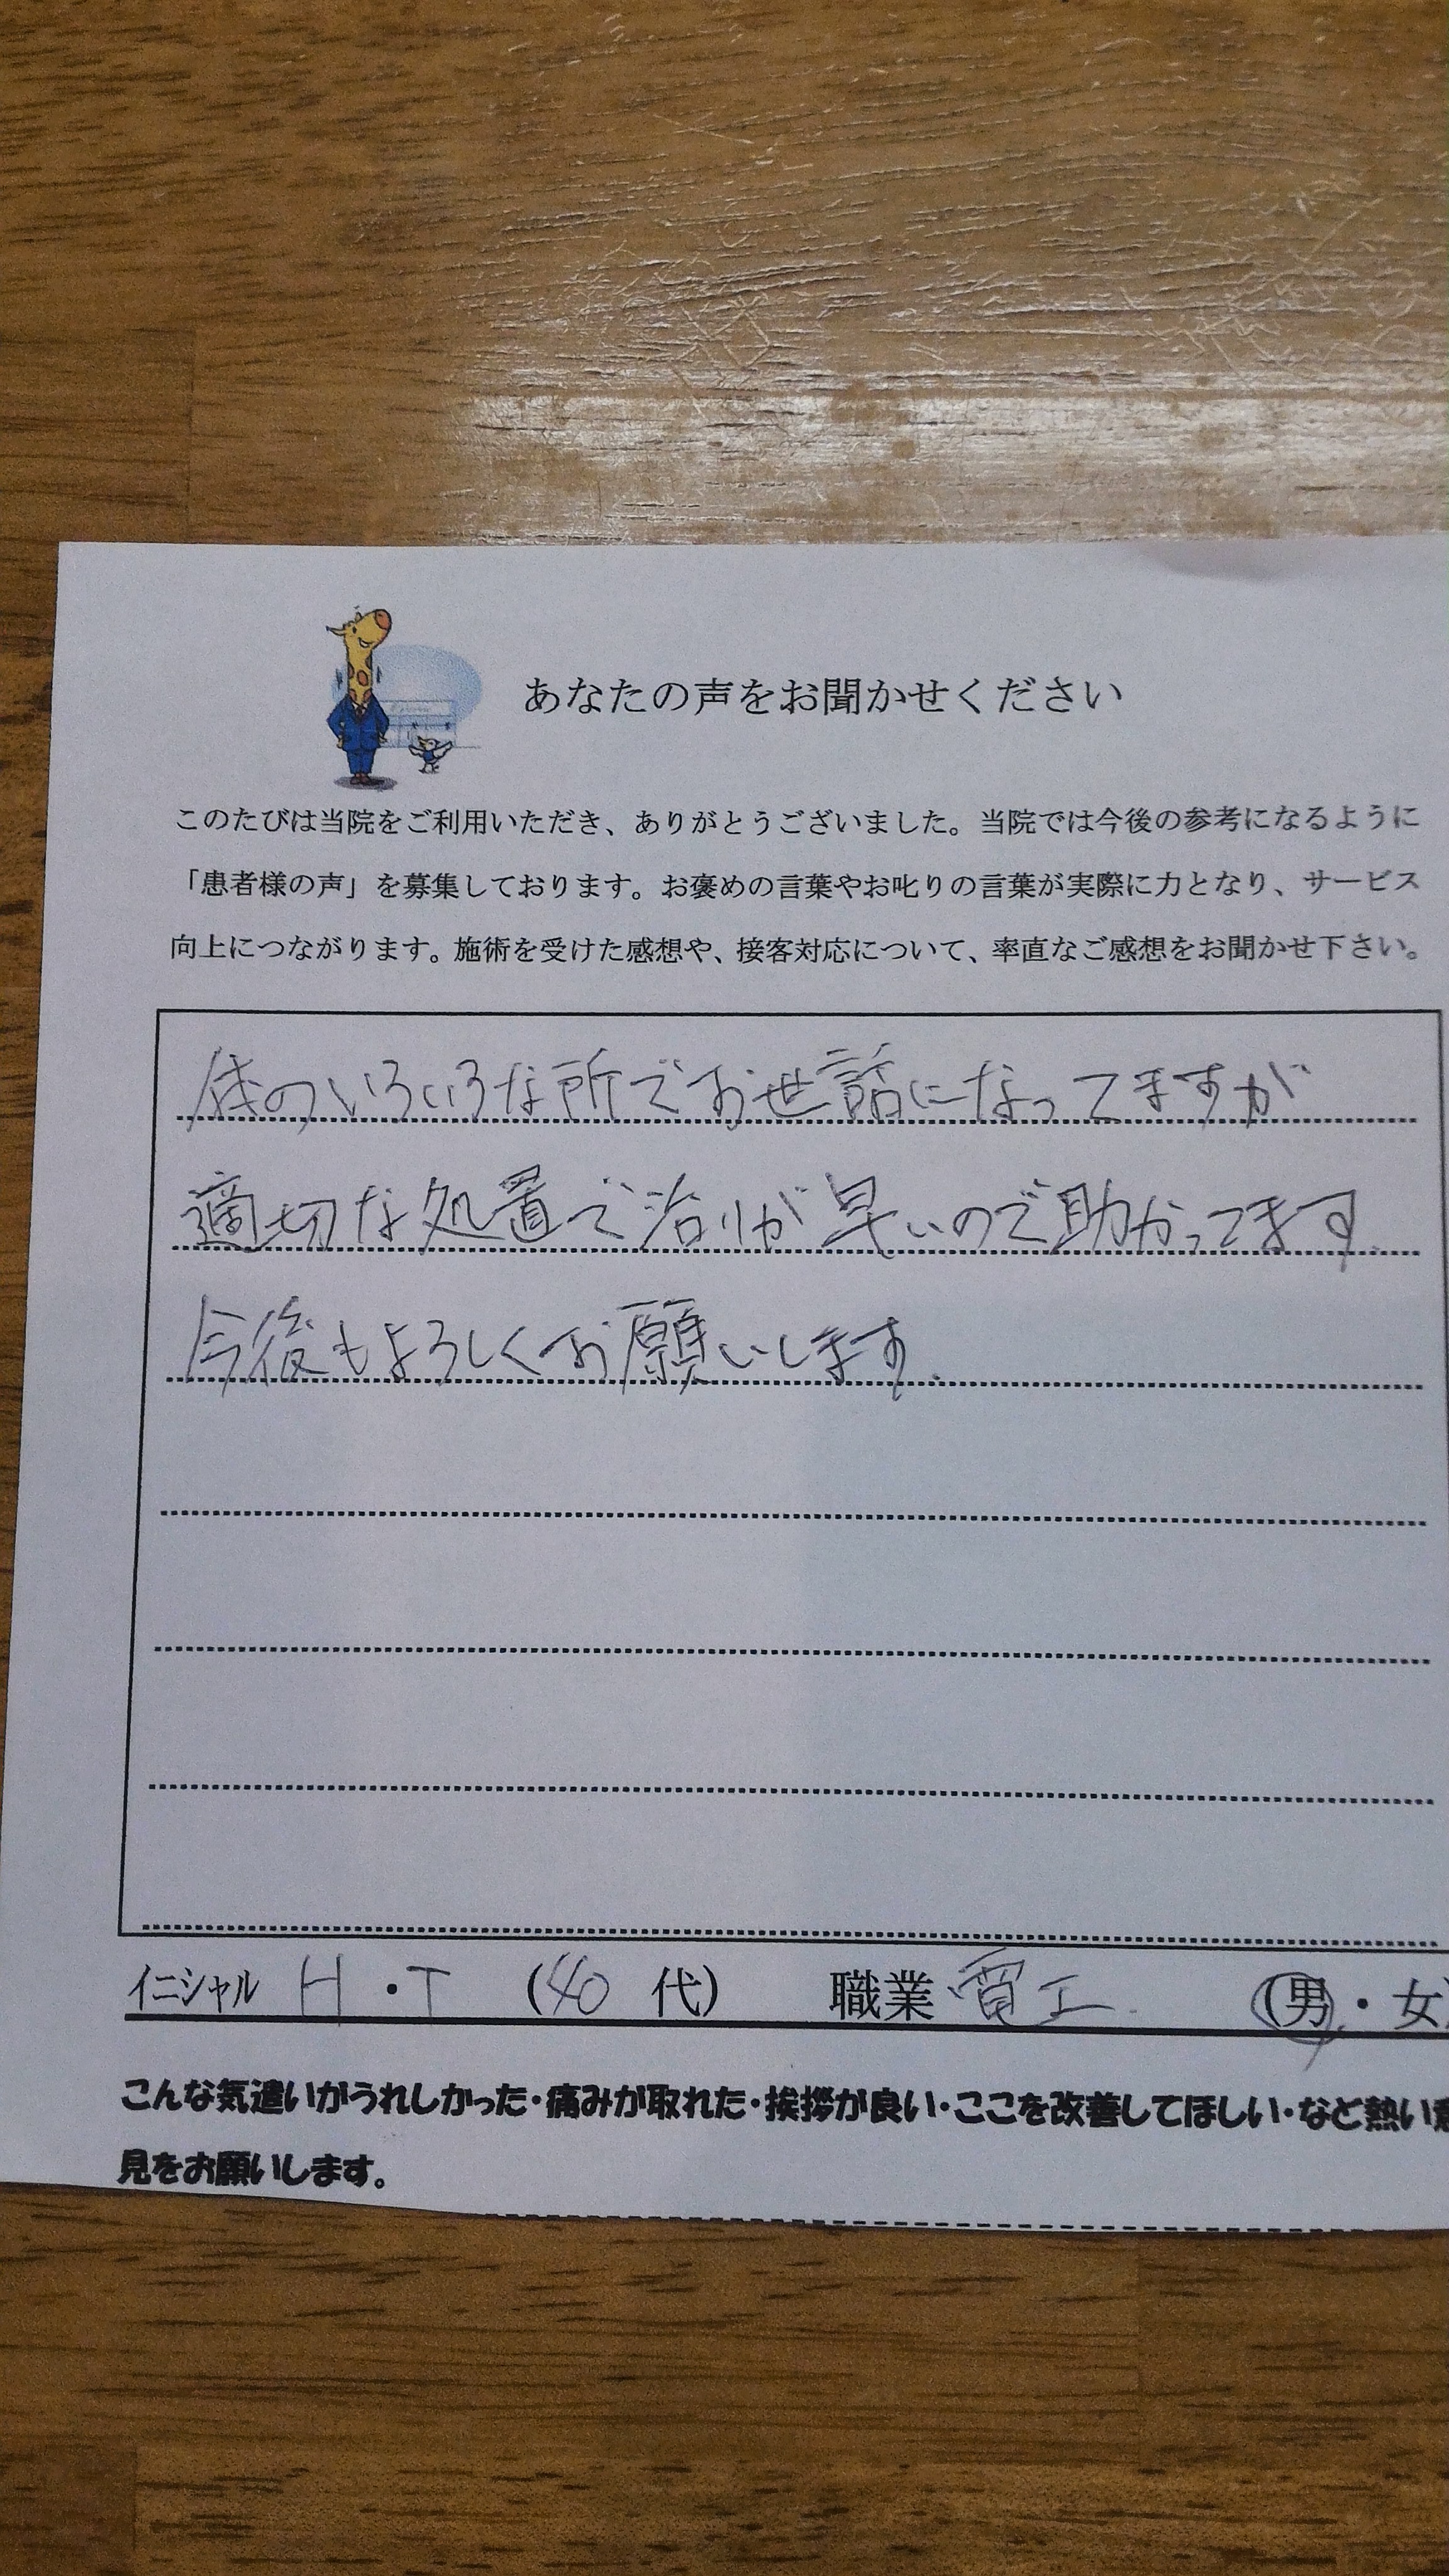 あなたの声をお聞かせください
このたびは当院をご利用いただき、ありがとうございました。当院では今後の参考になるように
「患者様の声」を募集しております。お褒めの言葉やお叱りの言葉が実際に力となり、サービス
向上につながります。施術を受けた感想や、接客対応について、率直なご感想をお聞かせ下さい。
体のいろいろな所でお世話になってますが
適切な処置で治りが早いので助かってます
今後もよろしくお願いします.
イニシャル H・T (40 代) 職業 電工 (男・女)
こんな気遣いがうれしかった・痛みが取れた・挨拶が良い・ここを改善してほしい・など熱い意
見をお願いします。